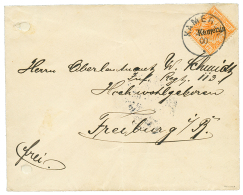 KAMERUN
Kamerun
Herrn Oberleutnant W. Schmidt
Inft. Regt. 113
Hochwohlgeboren
Freiburg i/B.
frei.